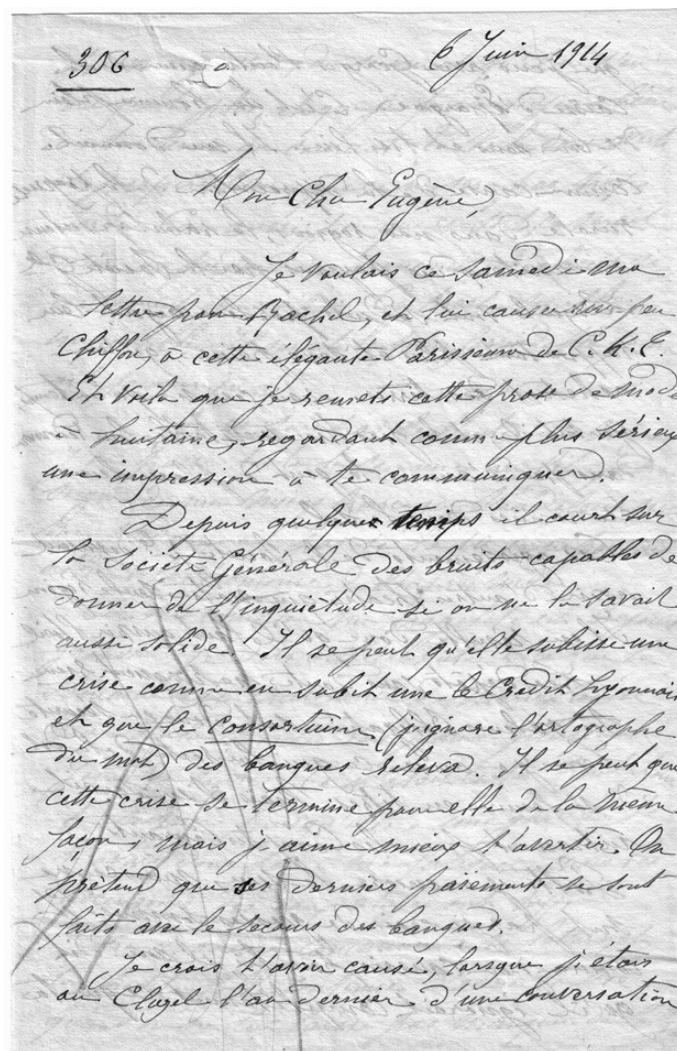 306
6 Juin 1914
Mon Cher Eugène,
Je voulais ce samedi ma
lettre pour Rachel, et lui causer un peu
chiffon, à cette élégante Parisienne de C.K.Z.
Et voilà que je remets cette prose de mode
à huitaine, regardant comme plus sérieux
une impression à te communiquer.
Depuis quelques temps il court sur
la Société Générale des bruits capables de
donner de l'inquiétude si on ne la savait
aussi solide. Il se peut qu'elle subisse une
crise comme en subit une le Crédit Lyonnais
et que le consortium (j'ignore l'ortographe
du mot) des banques releva. Il se peut que
cette crise se termine pour elle de la même
façon, mais j'aime mieux t'avertir. On
prétend que ses derniers paiements se sont
faits avec le secours des banques.
Je crois t'avoir causé, lorsque j'étais
au Cluzel l'an dernier d'une conversation